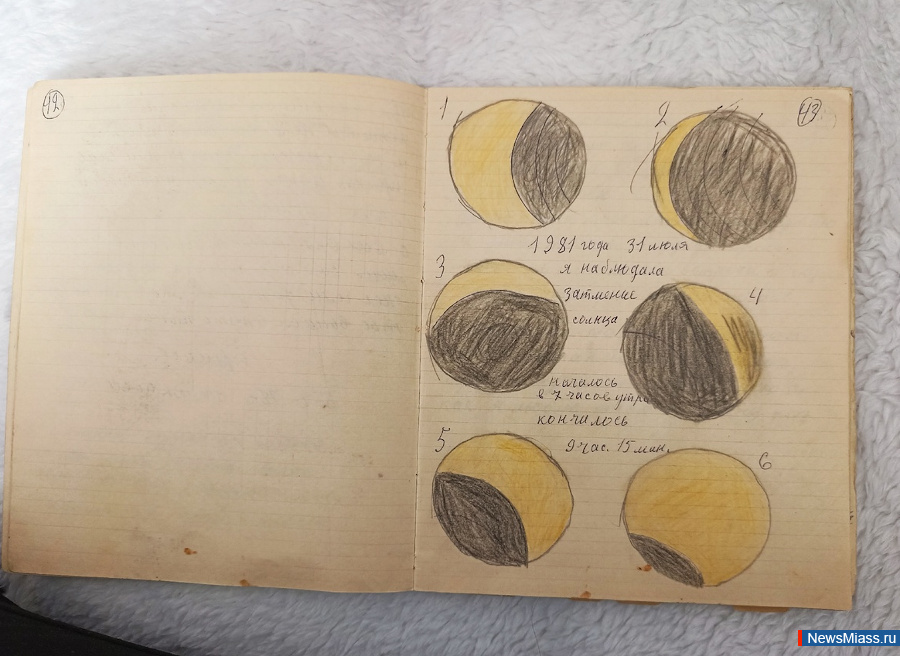 42
43
1
2
1981 года 31 июля
я наблюдала
3
затмение
4
солнца
началось
в 7 часов утра
кончилось
5
9 час. 15 мин.
6
NewsMiass.ru